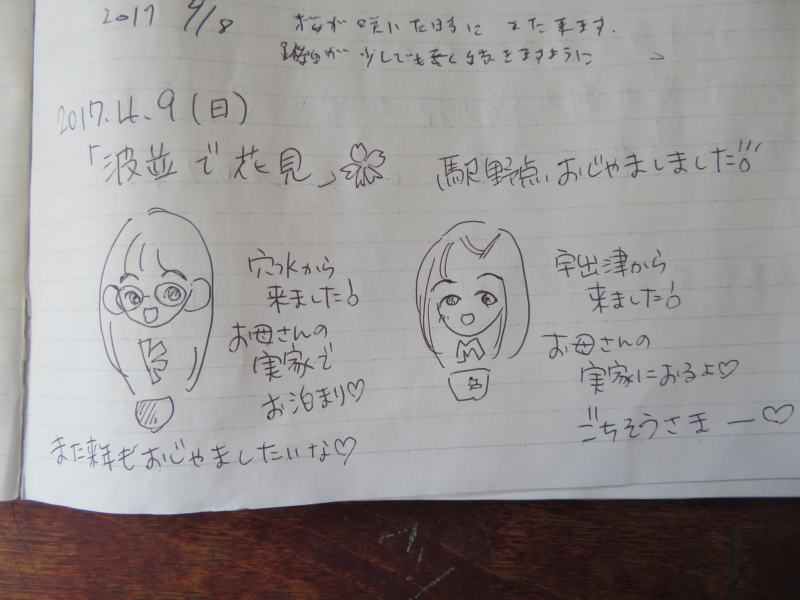 2017 4/8
桜が咲いた時に また来ます。
が 少しでも長く続きますように
2017.4.9(日)
「波並で花見」
駅野点、おじゃましました!!
穴水から
来ました!
お母さんの
実家で
お泊まり♡
また来年もおじゃましたいな♡
宇出津から
来ました!
お母さんの
実家におるよ♡
ごちそうさまー♡
K
M